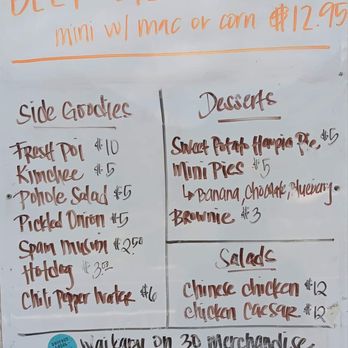 mini w/ mac or corn $12.95
Side Goodies
Fresh Poi $10
Kimchee $5
Pohole Salad $5
Pickled Onion $5
Spam musubi $2.50
Hotdog $3.50
Chili Pepper Water $6
Desserts
Sweet Potato Haupia Pie $5
Mini Pies $5
↳ Banana, Chocolate, Blueberry
Brownie $3
Salads
Chinese chicken $12
chicken Caesar $12
on 30 Merchandise